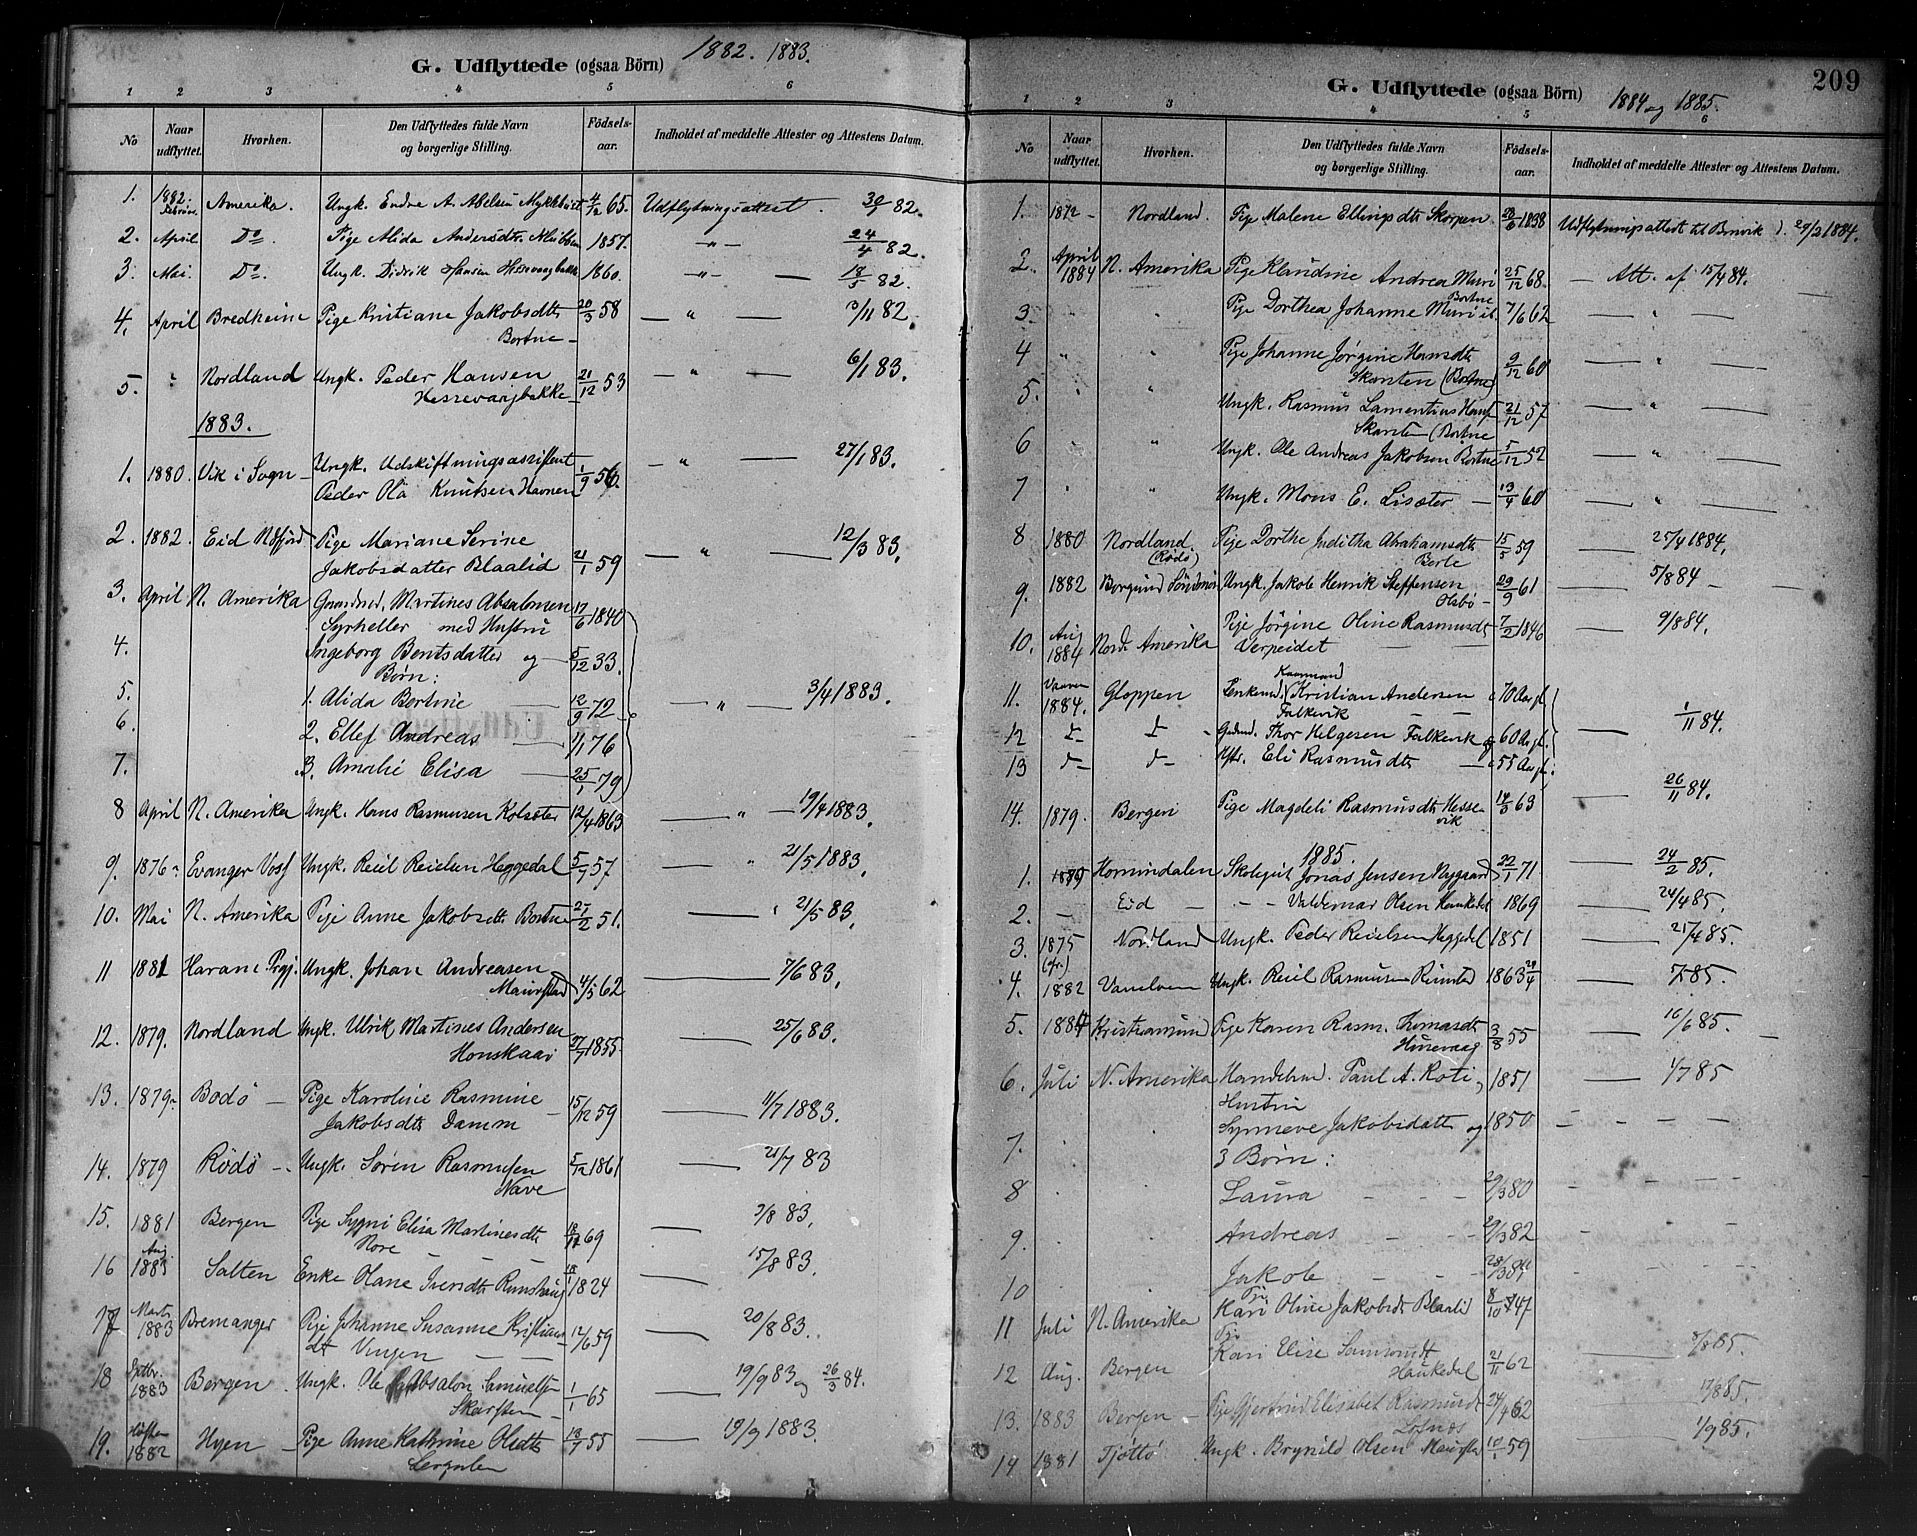 G. Udflyttede (ogsaa Börn) 1882. 1883.
1 2 3 4 5 6
No Naar udflyttet. Hvorhen. Den Udflyttedes fulde Navn og borgerlige Stilling. Födsels-aar. Indholdet af meddelte Attester og Attestens Datum.
1. 1882. Februar Amerika. Ungk. Endre A. Abelsen Myklebust 65. Udflytningsattest. 82.
2. April Do. Pige Alida Andersdtr. 1857. -"- 24/4 82.
3. Mai. Do. Ungk. Didrik Hansen Hessevaagbakke 1860. -"- 18/5 82.
4. April Bredheim Pige Kristiane Jakobsdtr 20/3 58 — " — 3/11 82.
Bortne -
5. " Nordland Ungk. Peder Hansen 21/12 53 — " — 6/1 83.
Hessevaagbakke
1883.
1. 1880. Vik i Sogn Ungk. Udskiftningsassistent 1/9 56. — " — 27/1 83.
Peder Ola Knutsen Havnen
2. 1882. Eid Nfjord Pige Mariane Serine 21/1 59 — " — 12/3 83.
Jakobsdatter Blaalid
3. April N. Amerika Grandmd. Martines Absalonsen 17/6 1840
Syrheller med Hustru
4. Ingeborg Bentsdatter og 8/12 33.
Börn:
5. 1. Alida Bertine 12/9 72 — " — 3/4 1883.
6. 2. Ellef Andreas 1/1 76
7. 3. Amalie Elisa 25/1 79
8 April N. Amerika Ungk. Hans Rasmusen Kolsæter 12/4 1863 — " — 19/4 1883.
9. 1876 Evanger Voss Ungk. Reiel Reielsen Heggedal 5/9 57 — " — 21/5 1883.
10. Mai N. Amerika Pige Anne Jakobsdtr Bortne 27/2 51. — " 21/5 83.
11 1881 Haram Prgj. Ungk. Johan Andreasen 4/5 62 — 7/6 83.
Maurstad
12. 1879. Nordland Ungk. Ulrik Martines Andersen 27/7 1855 — 25/6 83.
Honskaar
13. 1879 Bodö — Pige Karoline Rasmine 15/12 59 — 11/7 1883.
Jakobsdtr Damm
14. 1879 Rödö - Ungk. Sören Rasmusen 5/12 1861 — 21/7 83
Nave
15. 1881 Bergen Pige Sygni Elisa Martinesdtr 69 — 3/8 83.
Nore
16 Aug. 1883 Salten Enke Olane Iversdtr 18/1 1824 — 15/8 83.
17 Marts 1883 Bremanger Pige Johanne Susanne Kristians- 12/6 59 — 20/8 83.
dt Vingen
18 Septbr. 1883 Bergen Ungk. Ole Absalon Samuelsen 1/1 65 — 19/9 83 og 26/3 84.
Skarsten
19. Hösten 1882 Hyen — Pige Anne Kathrine Olsdtr 18/7 55 — 19/9 1883.
G. Udflyttede (ogsaa Börn) 1884 og 1885. 209
1 2 3 4 5 6
No Naar udflyttet. Hvorhen. Den Udflyttedes fulde Navn og borgerlige Stilling. Födsels-aar. Indholdet af meddelte Attester og Attestens Datum.
1. 1872 - Nordland. Pige Malene Ellingsdtr Skorpen. 28/6 1838 Udflytningsattest til 29/2 1884.
2. April 1884 N. Amerika Pige Klaudine Andrea Muri 25/12 68. — Att. af 15/4 84. —
3. " Pige Dorthea Johanne Muri Bortne 7/6 62 — " —
4 " " Pige Johanne Jørgine Hansdtr 9/12 60 — " —
Skarsten (Bortne)
5. " " Ungk. Rasmus Lamentius Hans. 21/12 57 — " —
Skarsten (Bortne
6 " " Ungk. Ole Andreas Jakobsen Bortne 5/12 52 — " —
7 " " Ungk. Mons E. Lisæter — 13/4 60 — " —
8 1880 Nordland (Rödö) Pige Dorthe Juditha Abrahamsdtr 15/5 59 — 25/4 1884.
Berle
9. 1882 Borgund Söndmör Ungk. Jakob Henrik Steffensen 29/9 61 — 5/8 84 —
Olsbö -
10. Aug 1884 Nord. Amerika Pige Jörgine Oline Rasmusdtr 7/2 1846 — 9/8 84.
Verpeidet
11. Vaaren 1884. Gloppen Enkemd. Kaarmand Kristian Andersen 70 Aar gl. — 1/11 84.
Falkevik
12 Do Do Gaardmd. Thor Helgesen Falkevik og 60 Aar gl.
13 Do Do Hstr. Eli Rasmusdtr — 55 Aar gl.
14. 1879. Bergen Pige Magdeli Rasmusdtr Hesse- 14/3 63 — 26/11 84.
vik
1885.
1. 1885 Hornindalen Skolegut Jonas Jensen Nygaard 22/1 71. — 24/2 85.
2. — Eid — - - Valdemar Olsen Haukedal 1869 — 24/4 85.
3. 1875 Nordland Ungk. Peder Reielsen Heggedal 1851 — 21/4 85.
4. 1882 Vanelven Ungk. Reiel Rasmusen Rimstad 1863 29/4 — 7/5 85.
5. 1884 Kristiansund Pige Karen Rasm. Thomasdtr 3/8 55 — 16/6 85. —
Husevaag
6. Juli N. Amerika Handelsmd. Paul A. Roti, 1851 — 1/7 85
Hustru
7. Synneve Jakobsdatt og 1850 - - - -
3 Börn:
8 Laura 2/3 80
9. Andreas 2/3 82
10 Jakob 28/3 84
11 Juli N. Amerika Pige Kari Oline Jakobsdt Blaalid 8/10 47
12 Aug. Bergen Pige Kari Elise Samsonsdt 21/11 62 8/8 85.
Haukedal
13. 1883 Bergen — Pige Gjertrud Elisabet Rasmusdt 24/4 62 85.
Lofnæs
14 1881 Tjöttö Ungk. Brynild Olsen Maurstad 10/1 59 1/9 85.